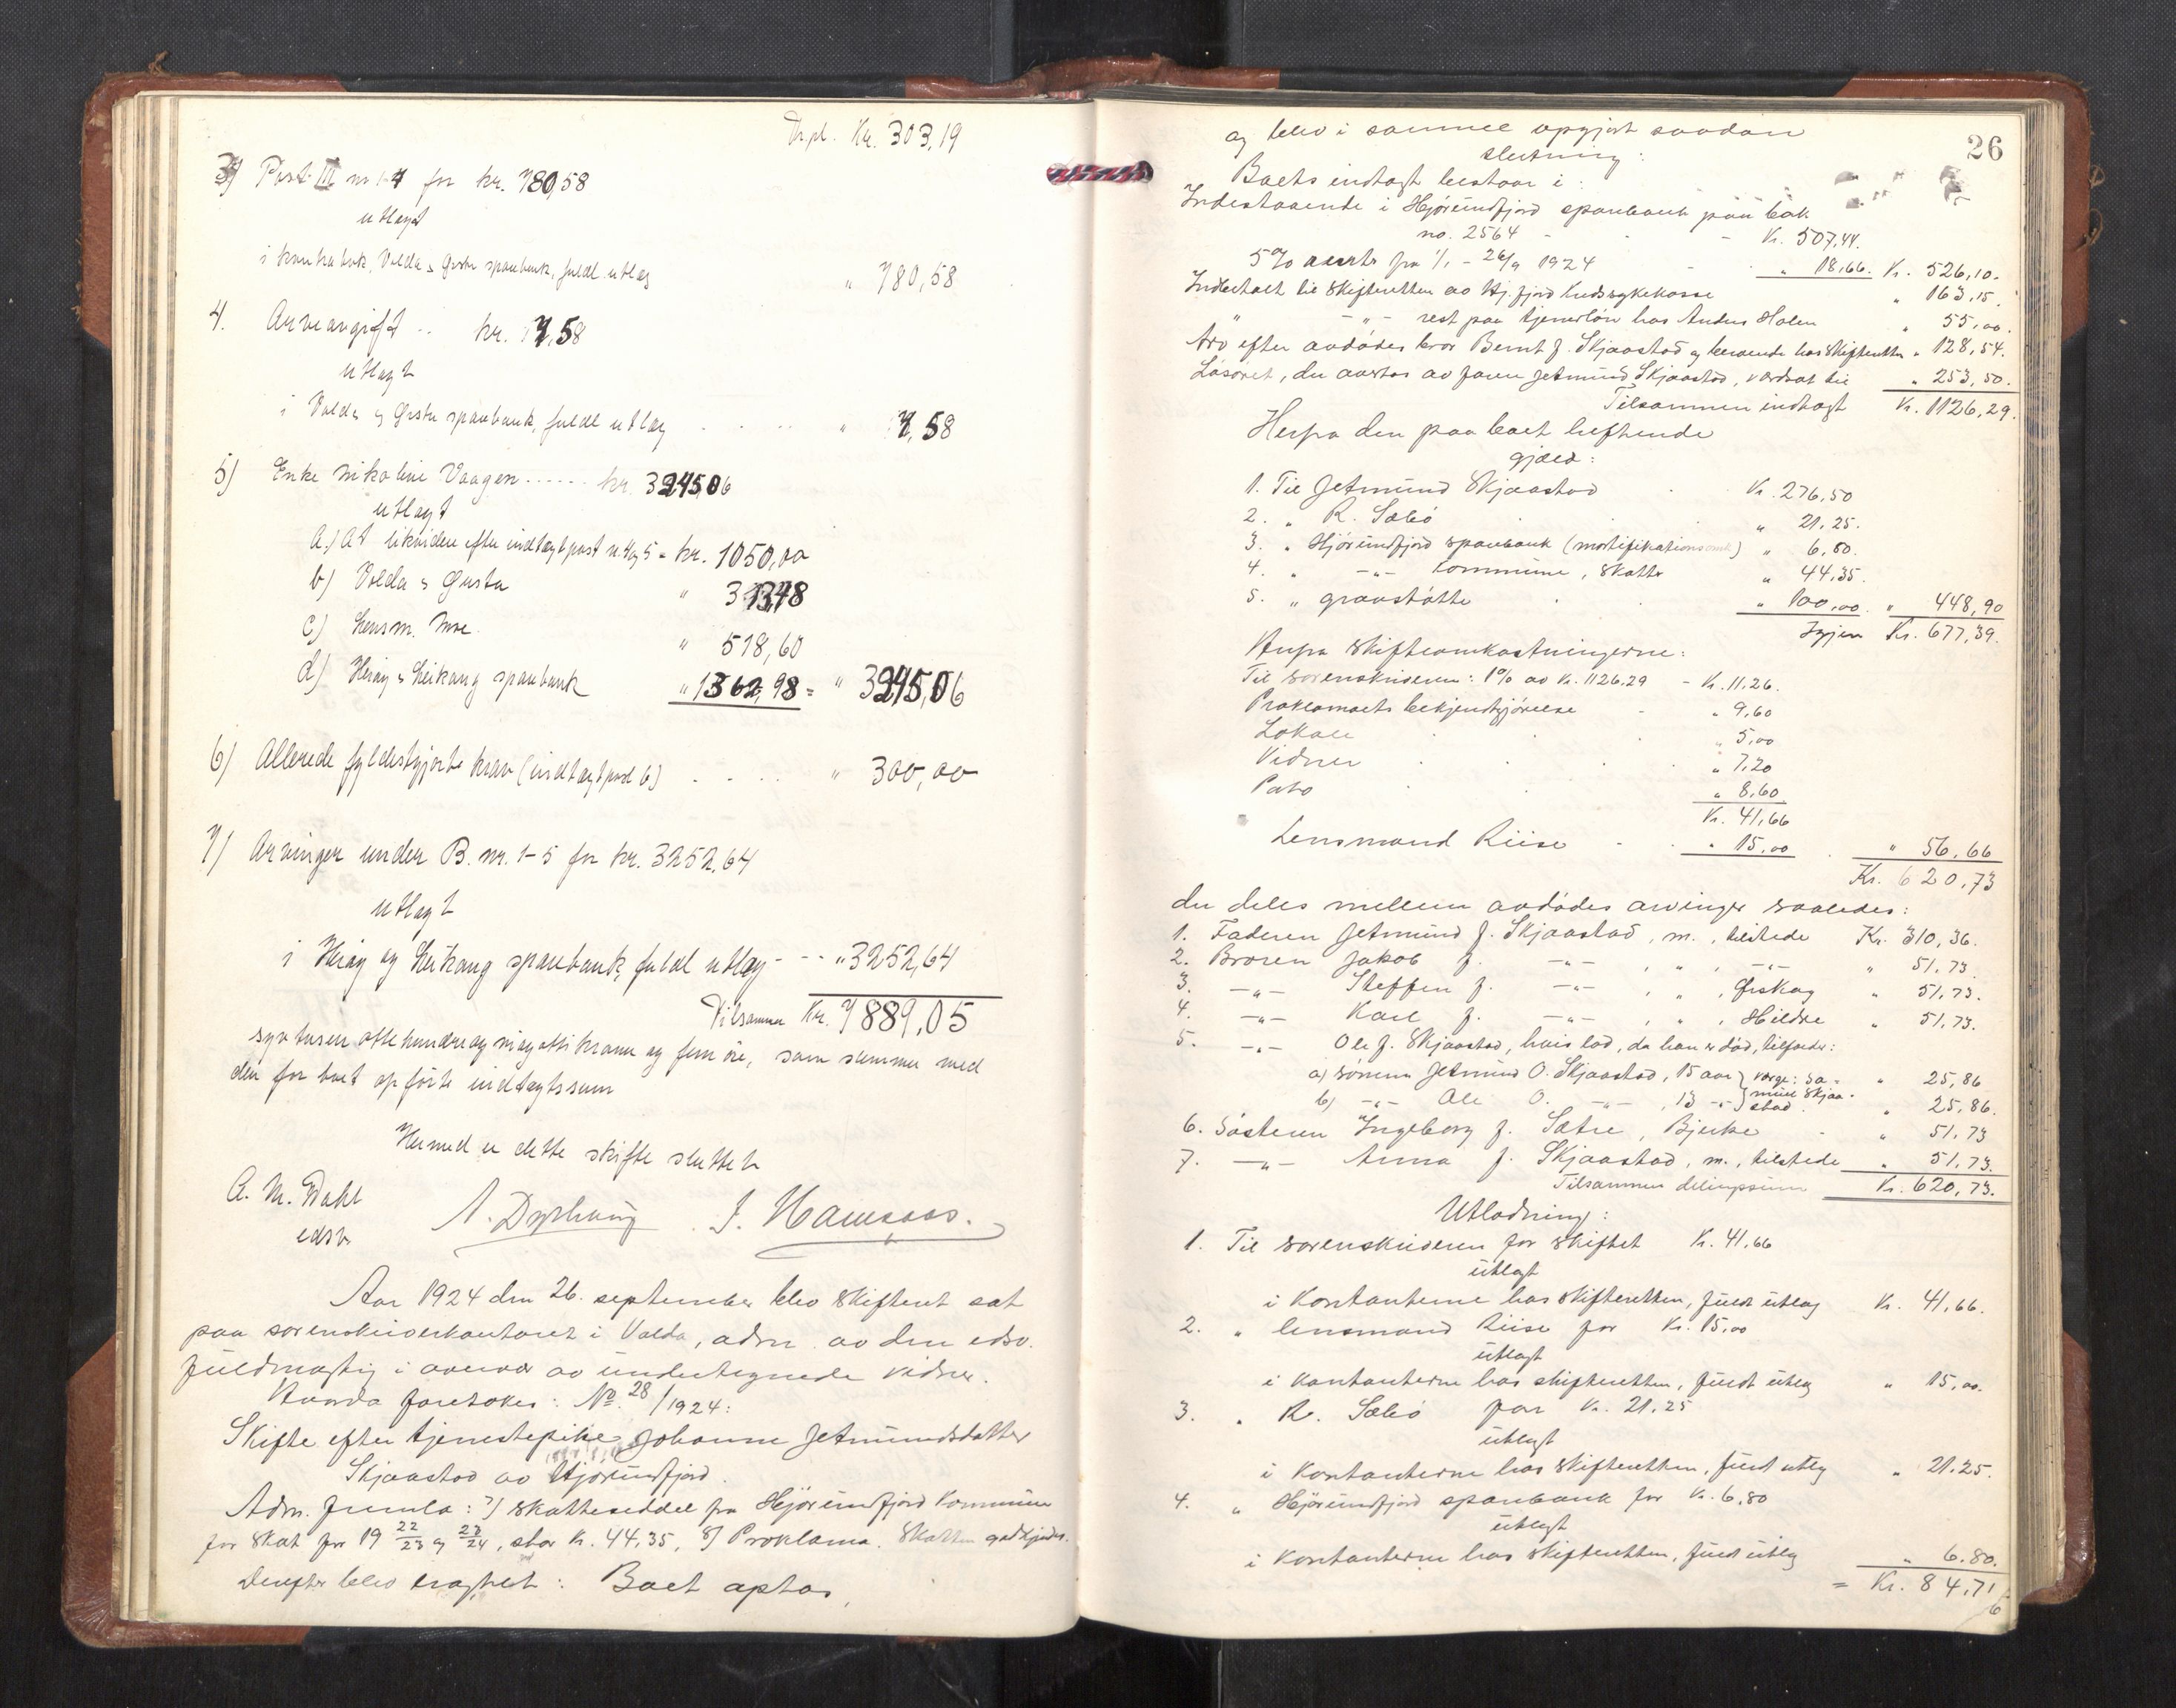 Trpl. Kr. 303,19
3) Post III nr 1-4 for kr. 780,58
utlagt
i kontrabok, Volda & Ørsta sparebank, fuldt utlæg " 780,58
4. Arveavgift .. kr. 17,58
utlagt
i Volda og Ørsta sparebank, fuldt utlæg . . . . " 17,58
5) Enke Nikoline Vaagen ...... kr. 3245,06
utlagt
a.) At likvidere efter indtægtpost nr. 4 og 5 = kr. 1050,00
b) Volda & Ørsta " 313,48
c) Lensm. Moe. " 518,60
d) Herøy & Leikang sparebank " 1362,98 = " 3245,06
6) Allerede fyldestgjorte krav (indtægtpost 6) . . . . " 300,00
7) Arvinger under B. nr. 1-5 for kr. 3252,64
utlagt
i Herøy og Leikang sparebank, fuldt utlæg - - - " 3252,64
Tilsammen Kr. 7889,05
syv tusen otte hundre og niogotti kroner og fem øre, som stemmer med
den for boet opførte indtægtssum
Hermed er dette skifte sluttet
A. M. Dahl
edsv.
A. Dyrhaug J. Hamsaas.
Aar 1924 den 26. september blev skifteret sat
paa sorenskriverkontoret i Volda, adm. av den edsv.
fuldmægtig i overvær av undertegnede vidner.
Hvorda foretokes: No. 28/1924:
Skifte efter tjenestepike Johanne Jetmundsdatter
Skjaastad av Hjørundfjord.
Adm. fremla: 7) Skatteseddel fra Hjørundfjord kommune
for skat for 19 22/23 og 23/24, stor kr. 44,35, 8) Proklama. Skatten godkjendes.
Derefter blev eragtet: Boet optas,
26
og blev i samme opgjort saadan
slutning:
Boets indtægt bestaar i:
Indestaaende i Hjørundfjord sparebank paa bok
no. 2564 - - - Kr. 507,44.
5% rente fra 1/1 - 26/9 1924 - " 18,66. Kr. 526,10.
Indbetalt til skifteretten av Hj.fjord kredssykekasse " 163,15.
" - " - rest paa tjenerløn hos Anders Holen " 55,00.
Arv efter avdødes bror Bernt J. Skjaastad og beroende hos skifteretten " 128,54.
Løsøret, der overtas av faren Jetmund Skjaastad, verdsat til " 253,50.
Tilsammen indtægt Kr. 1126,29.
Herfra den paa boet heftende
gjæld:
1. Til Jetmund Skjaastad . Kr. 276,50
2. " R. Sæbø . . " 21,25.
3. " Hjørundfjord sparebank (mortifikationsomk) " 6,80.
4. " -"- kommune, skatte " 44,35.
5. " gravstøtte . . " 100,00. " 448,90
Igjen Kr. 677,39.
Herfra skifteomkostningerne:
Til sorenskriveren: 1% av kr. 1126,29 - Kr. 11,26.
Proklamaets bekjendtgjørelse - " 9,60
Lokale . . " 5,00
Vidner . . " 7,20
Porto . . " 8,60
Kr. 41,66
Lensmand Riise . . " 15,00 . " 56,66
Kr. 620,73
der deles mellem avdødes arvinger saaledes:
1. Faderen Jetmund J. Skjaastad, m., tilstede Kr. 310,36.
2. Broren Jakob J. -"- , " , -"- " 51,73.
3. -"- Steffen J. -"- , " , Ørskog " 51,73.
4. -"- Karl J. -"- , " , Hildre " 51,73.
5. -"- Ole J. Skjaastad, hvis lod, da han er død, tilfalder:
a) sønnen Jetmund O. Skjaastad, 15 aar } værge: Sa- " 25,86
b) -"- Ole O. -"- , 13 -"- } muel Skjaa- stad. " 25,86.
6. Søsteren Ingeborg J. Sætre, Bjerke - " 51,73
7. -"- Anna J. Skjaastad, m., tilstede " 51,73.
Tilsammen delingssum Kr. 620,73.
Utlodning:
1. Til sorenskriveren for skiftet Kr. 41,66
utlagt
i kontanterne hos skifteretten, fuldt utlæg Kr. 41,66.
2. " lensmand Riise for Kr. 15,00
utlagt
i kontanterne hos skifteretten, fuldt utlæg " 15,00.
3. " R. Sæbø for Kr. 21,25
utlagt
i kontanterne hos skifteretten, fuldt utlæg " 21.25.
4. " Hjørundfjord sparebank for Kr. 6,80
utlagt
i kontanterne hos skifteretten, fuldt utlæg " 6.80.
= Kr. 84,71